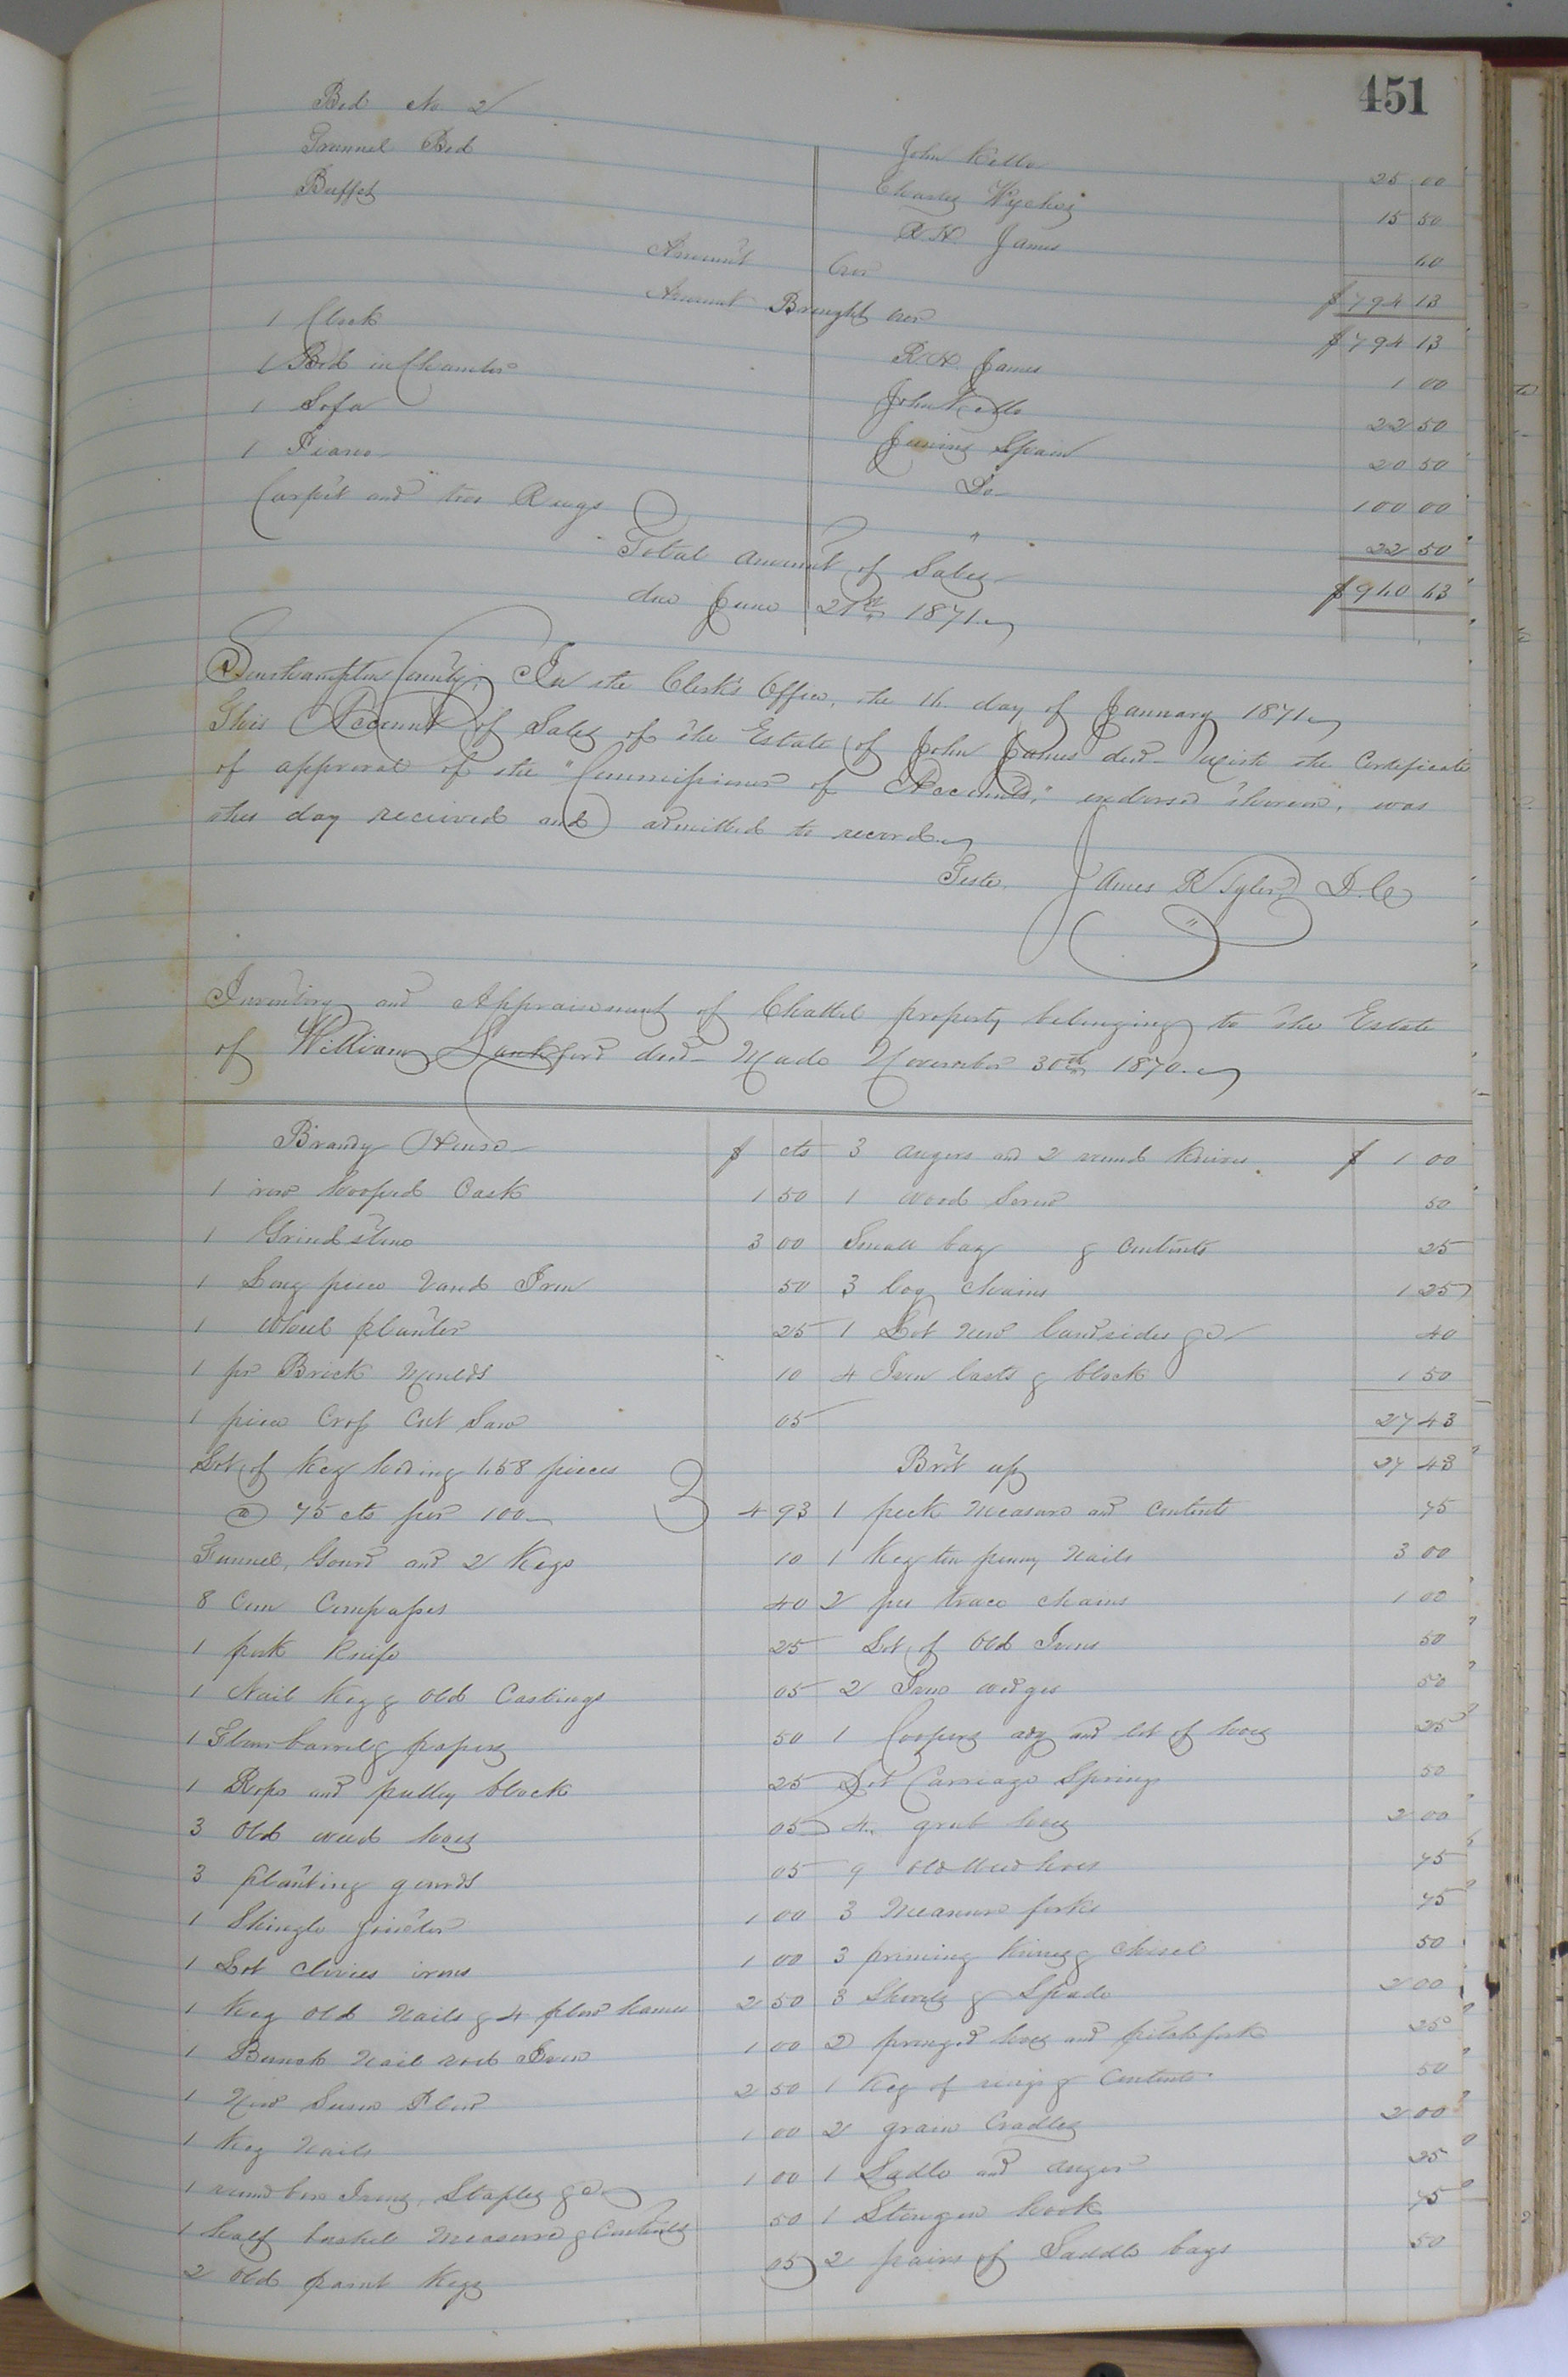 451
Bed No 2 John Kello 25 00
Trunnel Bed Charles Wyche 15 50
Buffet R H James 60
Amount Over $794 13
Amount Brought Over $794 13
1 Clock R. H. James 1 00
1 Bed in Chamber John Kello 22 50
1 Sofa Spain 20 50
1 Piano Do 100 00
Carpet and two Rugs " 22 50
Total amount of Sales $960 63
due June 21st 1871.
Southampton County; In the Clerk's Office, the 16 day of January 1871.
This Account of Sales of the Estate of John James decd with the Certificate
of approval of the "Commissioner of Accounts," endorsed thereon, was
this day received and admitted to record.
Teste. James R Tyler, D. C
Inventory and Appraisement of Chattel property belonging to the Estate
of William Lankford decd Made November 30th 1870.
Brandy House $ cts
1 iron hooped Cask 1 50
1 Grindstone 3 00
1 Long piece Band Iron 50
1 Wheel planter 25
1 pr Brick Moulds 10
1 piece Cross Cut Saw 05
Lot of Keg heading 658 pieces
@ 75 cts per 100 4 93
Funnel, Gourd and 2 Kegs 10
8 Compasses 40
1 pork Knife 25
1 Nail Keg & old Castings 05
1 Flour barrel & papers 50
1 Rope and pulley block 25
3 Old weed hoes 05
3 planting gourds 05
1 Shingle Jointer 1 00
1 Lot clivies irons 1 00
1 Keg old Nails & 4 plow hames 2 50
1 Bunch Nail rod Iron 1 00
1 New Plow 2 50
1 Keg Nails 1 00
1 round box Irons, Staples &c 1 00
1 half bushel Measure & Contents 50
2 old paint Kegs 05
3 augers and 2 round Knives $ 1 00
1 Wood Screw 50
Small bag & contents 25
3 log chains 1 25
1 Lot New landsides &c 40
4 Iron lasts & block 1 50
27 43
Bro't up 27 43
1 peck Measure and Contents 75
1 Keg ten penny Nails 3 00
2 prs trace chains 1 00
Lot of Old Irons 50
2 Iron wedges 50
1 Coopers adz and lot of hoes 25
Lot Carriage Springs 50
4 grub hoes 2 00
9 old weed hoes 75
3 Manure forks 75
3 pruning Knives & chisel 50
3 Shovels & Spade 2 00
2 pronged hoes and pitchfork 25
1 Keg of rings & Contents 50
2 grain Cradles 2 00
1 Ladle and auger 25
1 hook 75
2 pairs of Saddle bags 50